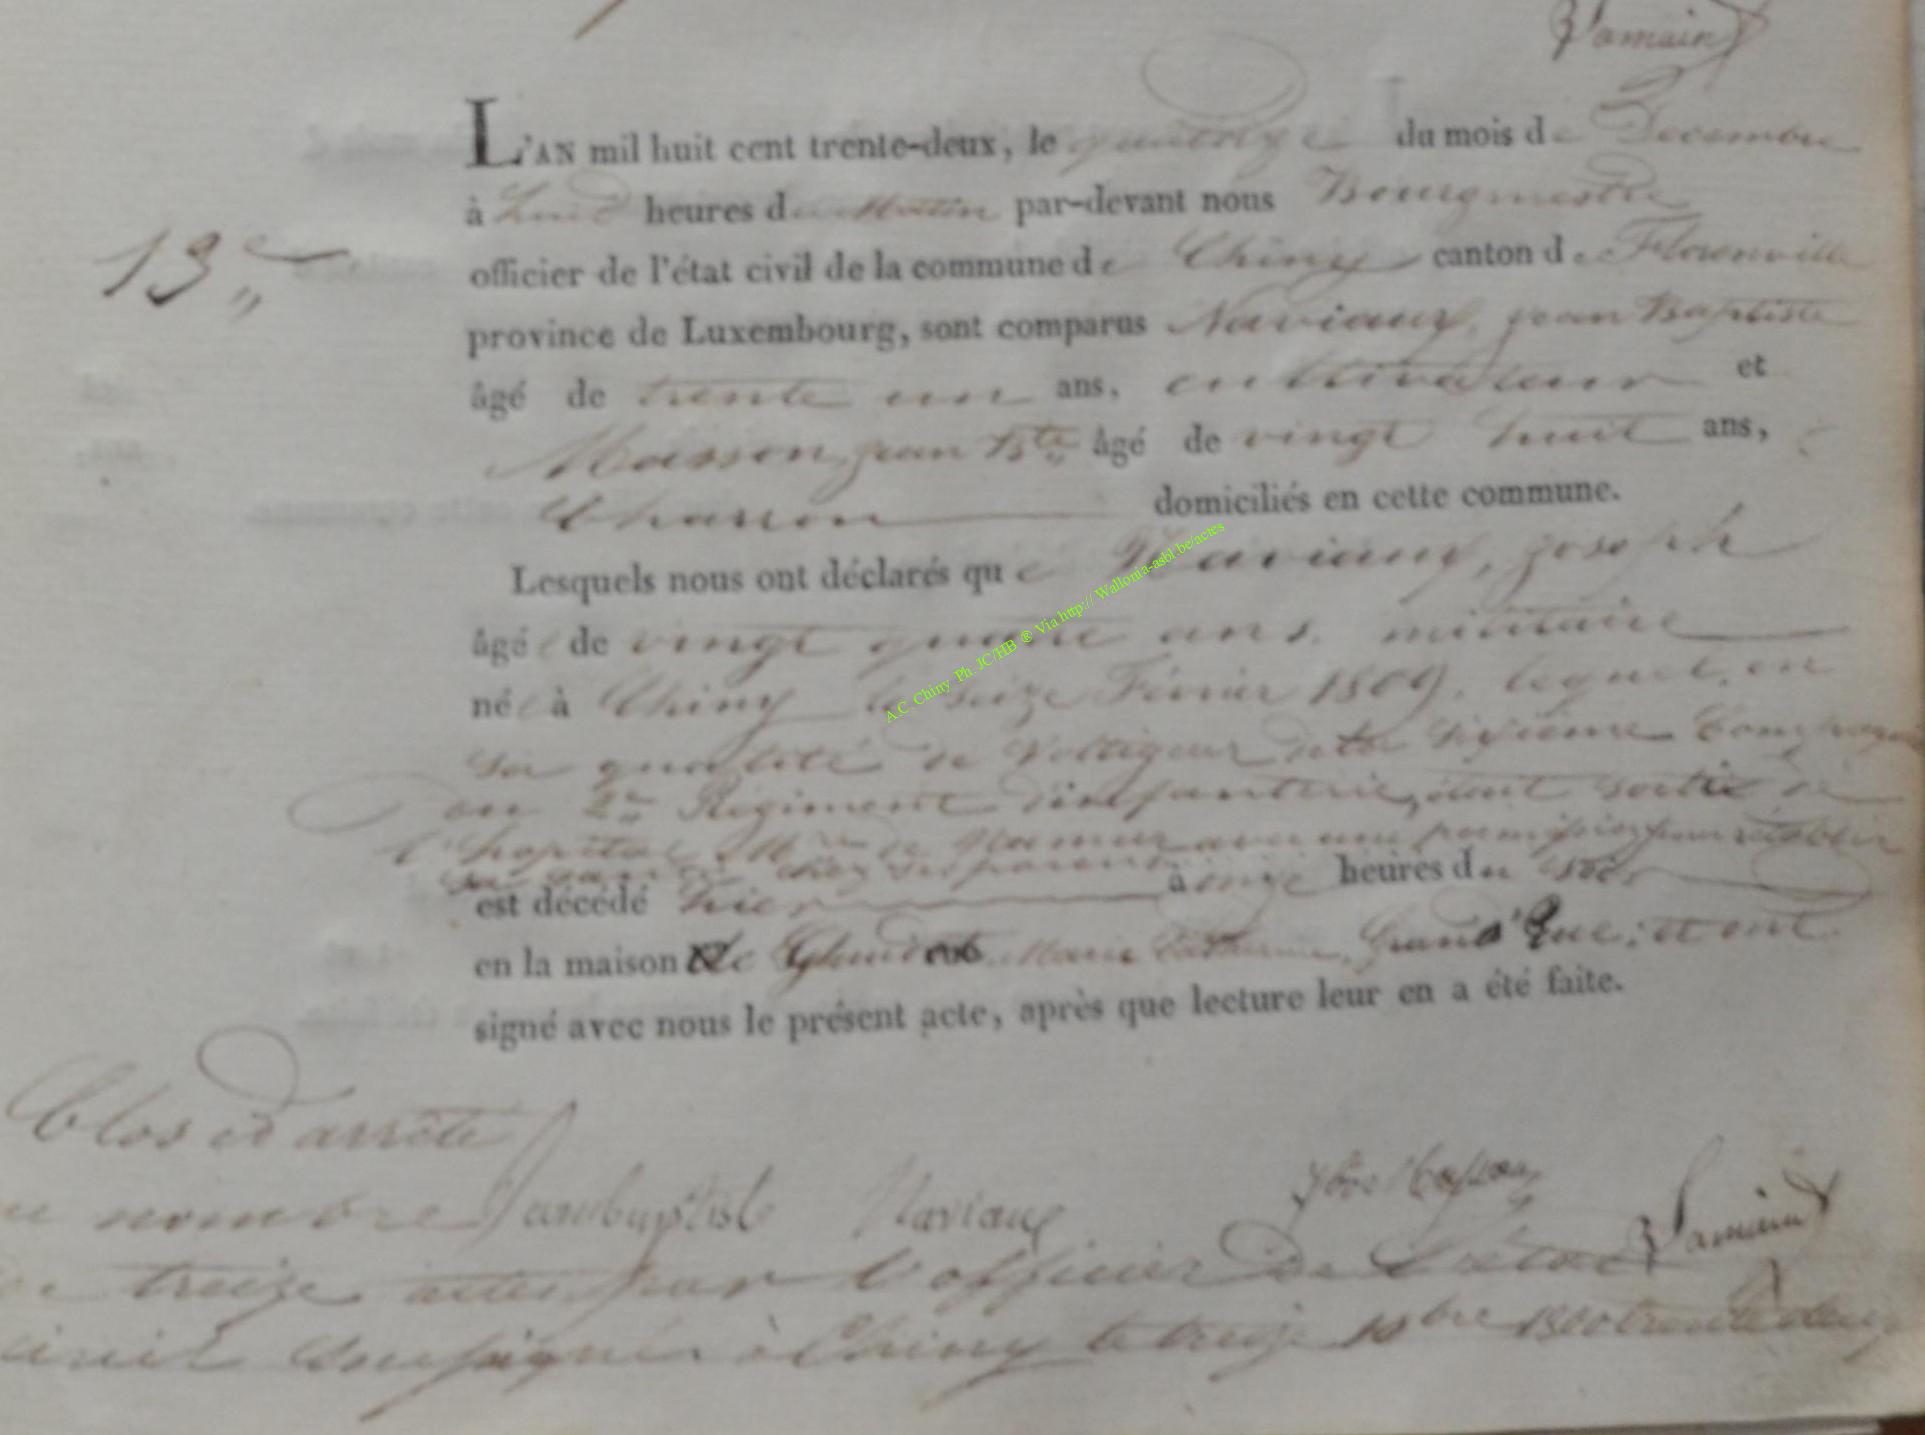 Lamain
L'AN mil huit cent trente-deux, le quatorze du mois de Decembre
à huit heures du Matin par-devant nous Bourgmestre
13e
officier de l'état civil de la commune de Chiny canton de Florenville
province de Luxembourg, sont comparus Naviaux, jean Baptiste
âgé de trente un ans, cultivateur et
Masson, jean Bte âgé de vingt huit ans,
Charron domiciliés en cette commune.
Lesquels nous ont déclarés que Naviaux, joseph
âgé de vingt quatre ans. militaire
né à Chiny le seize Février 1809. lequel, en
sa qualité de Voltigeur de la sixième Compagnie
du 2e Régiment d'infanterie, étant sortie de
l'hopital Mre de Namur avec une permission pour rétablir
sa santé chez ses parents
est décédé hier à onze heures du soir
en la maison de Marie Catherine, Grand'Rue; et ont
signé avec nous le présent acte, après que lecture leur en a été faite.
Clos et arrêté
au nombre Jeanbaptiste Naviaux Jbte Masson
de treize actes par l'officier de l'état Lamain
civil soussigné à Chiny le treize 10bre 1800 trente deux
A.C. Chiny Ph. JC/HB ® Via http:// Wallonia-asbl.be/actes